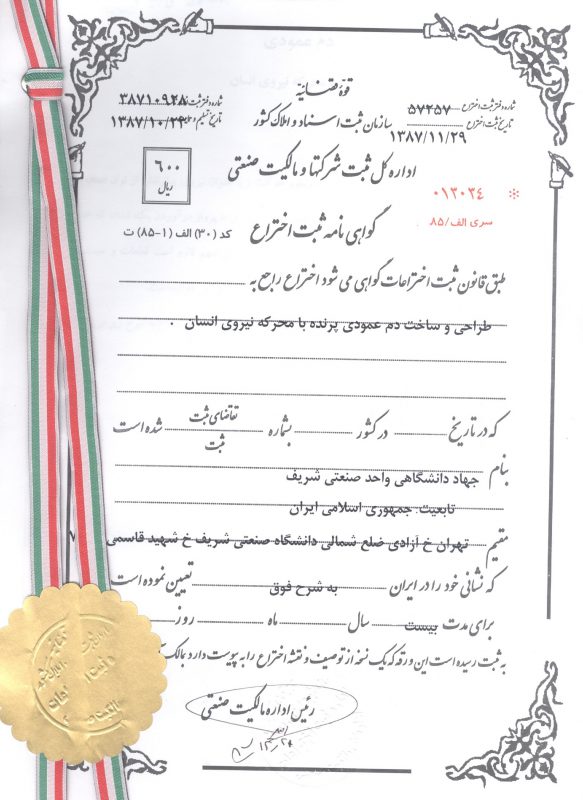 قوه قضائیه
شماره دفتر ثبت اختراع ۵۷۲۵۷
شماره دفتر ثبت ۳۸۷۱۰۹۲۸
تاریخ ثبت اختراع ۱۳۸۷/۱۱/۲۹
سازمان ثبت اسناد و املاک کشور
تاریخ تسلیم ۱۳۸۷/۱۰/۲۴
اداره کل ثبت شرکتها و مالکیت صنعتی
۶۰۰
ریال
* ۰۱۳۰۳۴
سری الف/۸۵
گواهی نامه ثبت اختراع
کد (۳۰) الف (۱-۸۵) ت
طبق قانون ثبت اختراعات گواهی می شود اختراع راجع به
طراحی و ساخت دم عمودی پرنده با محرکه نیروی انسان .
که در تاریخ در کشور بشماره تقاضای ثبت شده است
ثبت
بنام جهاد دانشگاهی واحد صنعتی شریف
تابعیت: جمهوری اسلامی ایران
مقیم تهران خ آزادی ضلع شمالی دانشگاه صنعتی شریف خ شهید قاسمی
که نشانی خود را در ایران به شرح فوق تعیین نموده است
برای مدت بیست سال ماه روز
به ثبت رسیده است این ورقه که یک نسخه از توصیف و نقشه اختراع را به پیوست دارد بمالک
رئیس اداره مالکیت صنعتی